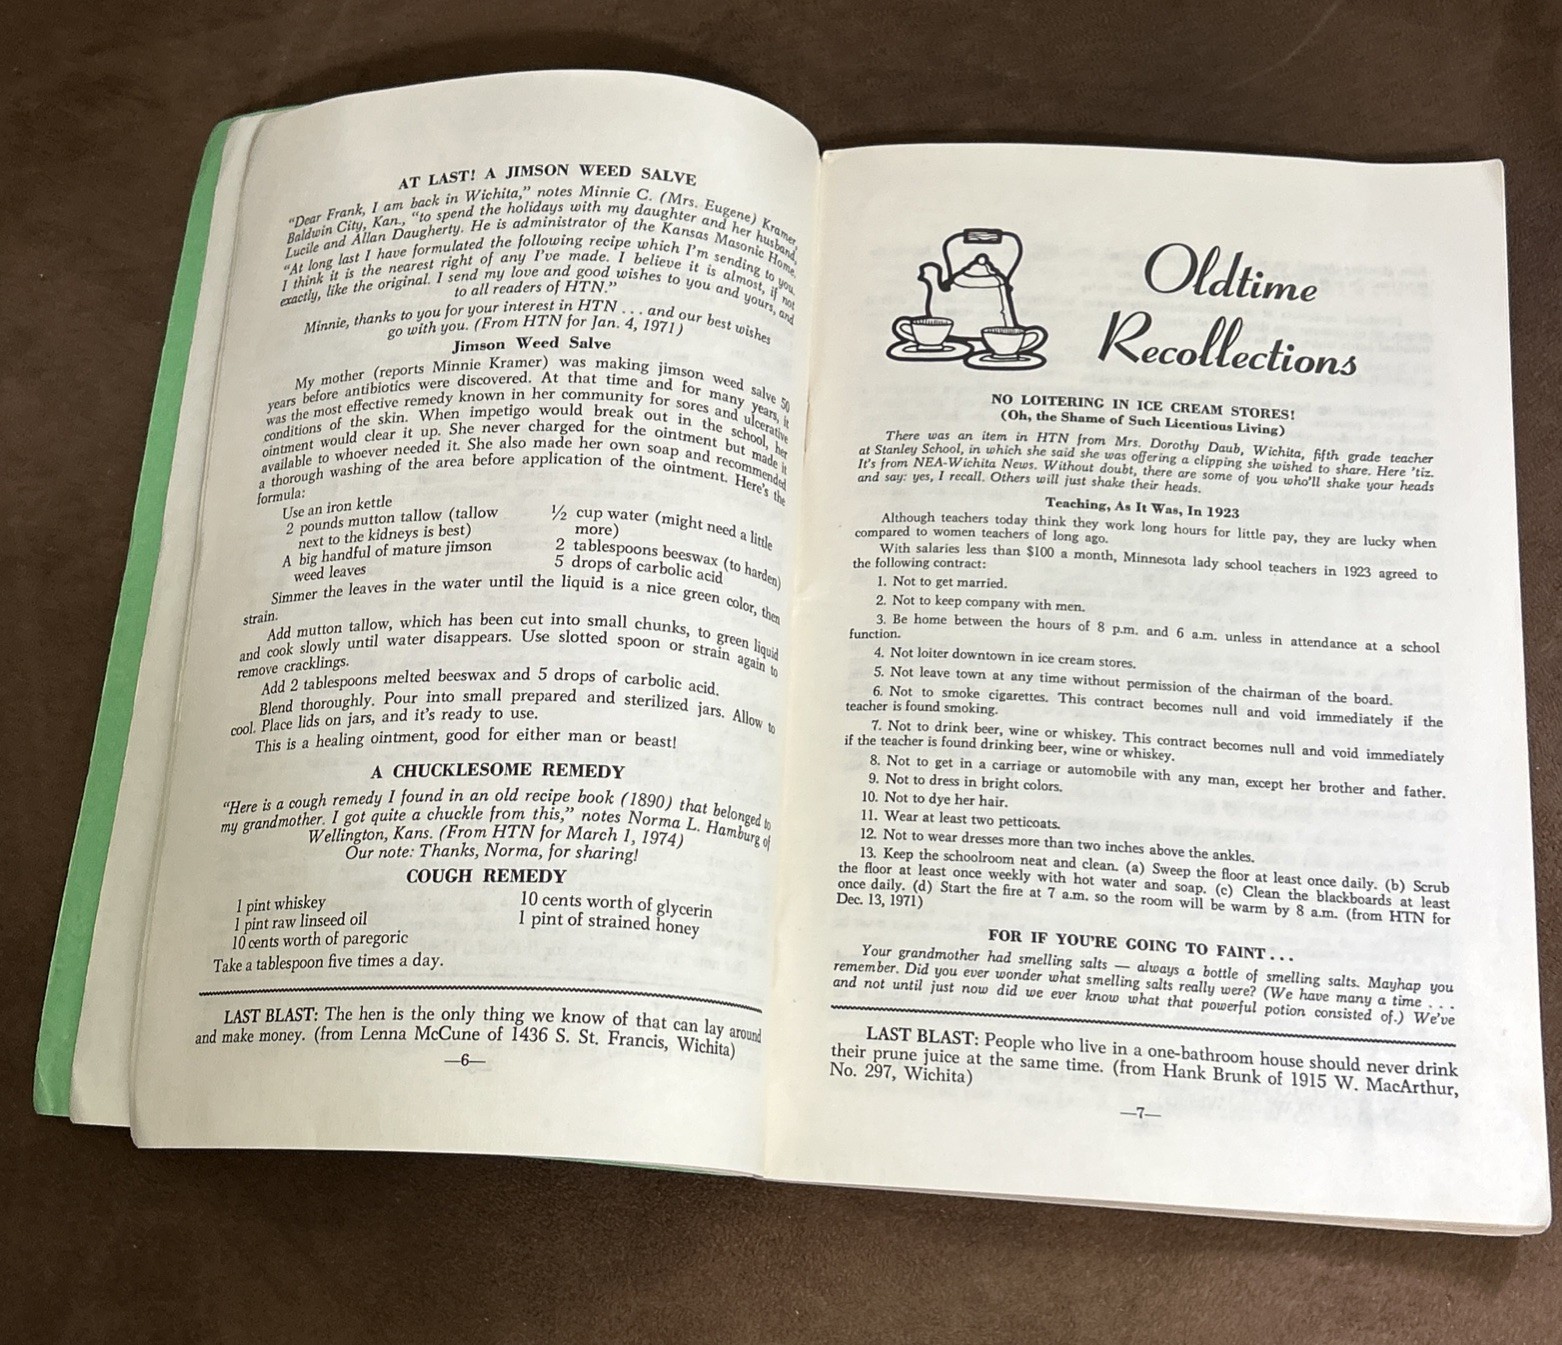 AT LAST! A JIMSON WEED SALVE
"Dear Frank, I am back in Wichita," notes Minnie C. (Mrs. Eugene) Kramer,
Baldwin City, Kan., "to spend the holidays with my daughter and her husband,
Lucile and Allan Daugherty. He is administrator of the Kansas Masonic Home.
"At long last I have formulated the following recipe which I'm sending to you.
I think it is the nearest right of any I've made. I believe it is almost, if not
exactly, like the original. I send my love and good wishes to you and yours, and
to all readers of HTN."
Minnie, thanks to you for your interest in HTN . . . and our best wishes
go with you. (From HTN for Jan. 4, 1971)
Jimson Weed Salve
My mother (reports Minnie Kramer) was making jimson weed salve 50
years before antibiotics were discovered. At that time and for many years, it
was the most effective remedy known in her community for sores and ulcerative
conditions of the skin. When impetigo would break out in the school, her
ointment would clear it up. She never charged for the ointment but made it
available to whoever needed it. She also made her own soap and recommended
a thorough washing of the area before application of the ointment. Here's the
formula:
Use an iron kettle
2 pounds mutton tallow (tallow
next to the kidneys is best)
A big handful of mature jimson
weed leaves
½ cup water (might need a little
more)
2 tablespoons beeswax (to harden)
5 drops of carbolic acid
Simmer the leaves in the water until the liquid is a nice green color, then
strain.
Add mutton tallow, which has been cut into small chunks, to green liquid
and cook slowly until water disappears. Use slotted spoon or strain again to
remove cracklings.
Add 2 tablespoons melted beeswax and 5 drops of carbolic acid.
Blend thoroughly. Pour into small prepared and sterilized jars. Allow to
cool. Place lids on jars, and it's ready to use.
This is a healing ointment, good for either man or beast!
A CHUCKLESOME REMEDY
"Here is a cough remedy I found in an old recipe book (1890) that belonged to
my grandmother. I got quite a chuckle from this," notes Norma L. Hamburg of
Wellington, Kans. (From HTN for March 1, 1974)
Our note: Thanks, Norma, for sharing!
COUGH REMEDY
1 pint whiskey
1 pint raw linseed oil
10 cents worth of paregoric
10 cents worth of glycerin
1 pint of strained honey
Take a tablespoon five times a day.
LAST BLAST: The hen is the only thing we know of that can lay around
and make money. (from Lenna McCune of 1436 S. St. Francis, Wichita)
—6—
Oldtime
Recollections
NO LOITERING IN ICE CREAM STORES!
(Oh, the Shame of Such Licentious Living)
There was an item in HTN from Mrs. Dorothy Daub, Wichita, fifth grade teacher
at Stanley School, in which she said she was offering a clipping she wished to share. Here 'tiz.
It's from NEA-Wichita News. Without doubt, there are some of you who'll shake your heads
and say: yes, I recall. Others will just shake their heads.
Teaching, As It Was, In 1923
Although teachers today think they work long hours for little pay, they are lucky when
compared to women teachers of long ago.
With salaries less than $100 a month, Minnesota lady school teachers in 1923 agreed to
the following contract:
1. Not to get married.
2. Not to keep company with men.
3. Be home between the hours of 8 p.m. and 6 a.m. unless in attendance at a school
function.
4. Not loiter downtown in ice cream stores.
5. Not leave town at any time without permission of the chairman of the board.
6. Not to smoke cigarettes. This contract becomes null and void immediately if the
teacher is found smoking.
7. Not to drink beer, wine or whiskey. This contract becomes null and void immediately
if the teacher is found drinking beer, wine or whiskey.
8. Not to get in a carriage or automobile with any man, except her brother and father.
9. Not to dress in bright colors.
10. Not to dye her hair.
11. Wear at least two petticoats.
12. Not to wear dresses more than two inches above the ankles.
13. Keep the schoolroom neat and clean. (a) Sweep the floor at least once daily. (b) Scrub
the floor at least once weekly with hot water and soap. (c) Clean the blackboards at least
once daily. (d) Start the fire at 7 a.m. so the room will be warm by 8 a.m. (from HTN for
Dec. 13, 1971)
FOR IF YOU'RE GOING TO FAINT . . .
Your grandmother had smelling salts — always a bottle of smelling salts. Mayhap you
remember. Did you ever wonder what smelling salts really were? (We have many a time . . .
and not until just now did we ever know what that powerful potion consisted of.) We've
LAST BLAST: People who live in a one-bathroom house should never drink
their prune juice at the same time. (from Hank Brunk of 1915 W. MacArthur,
No. 297, Wichita)
—7—